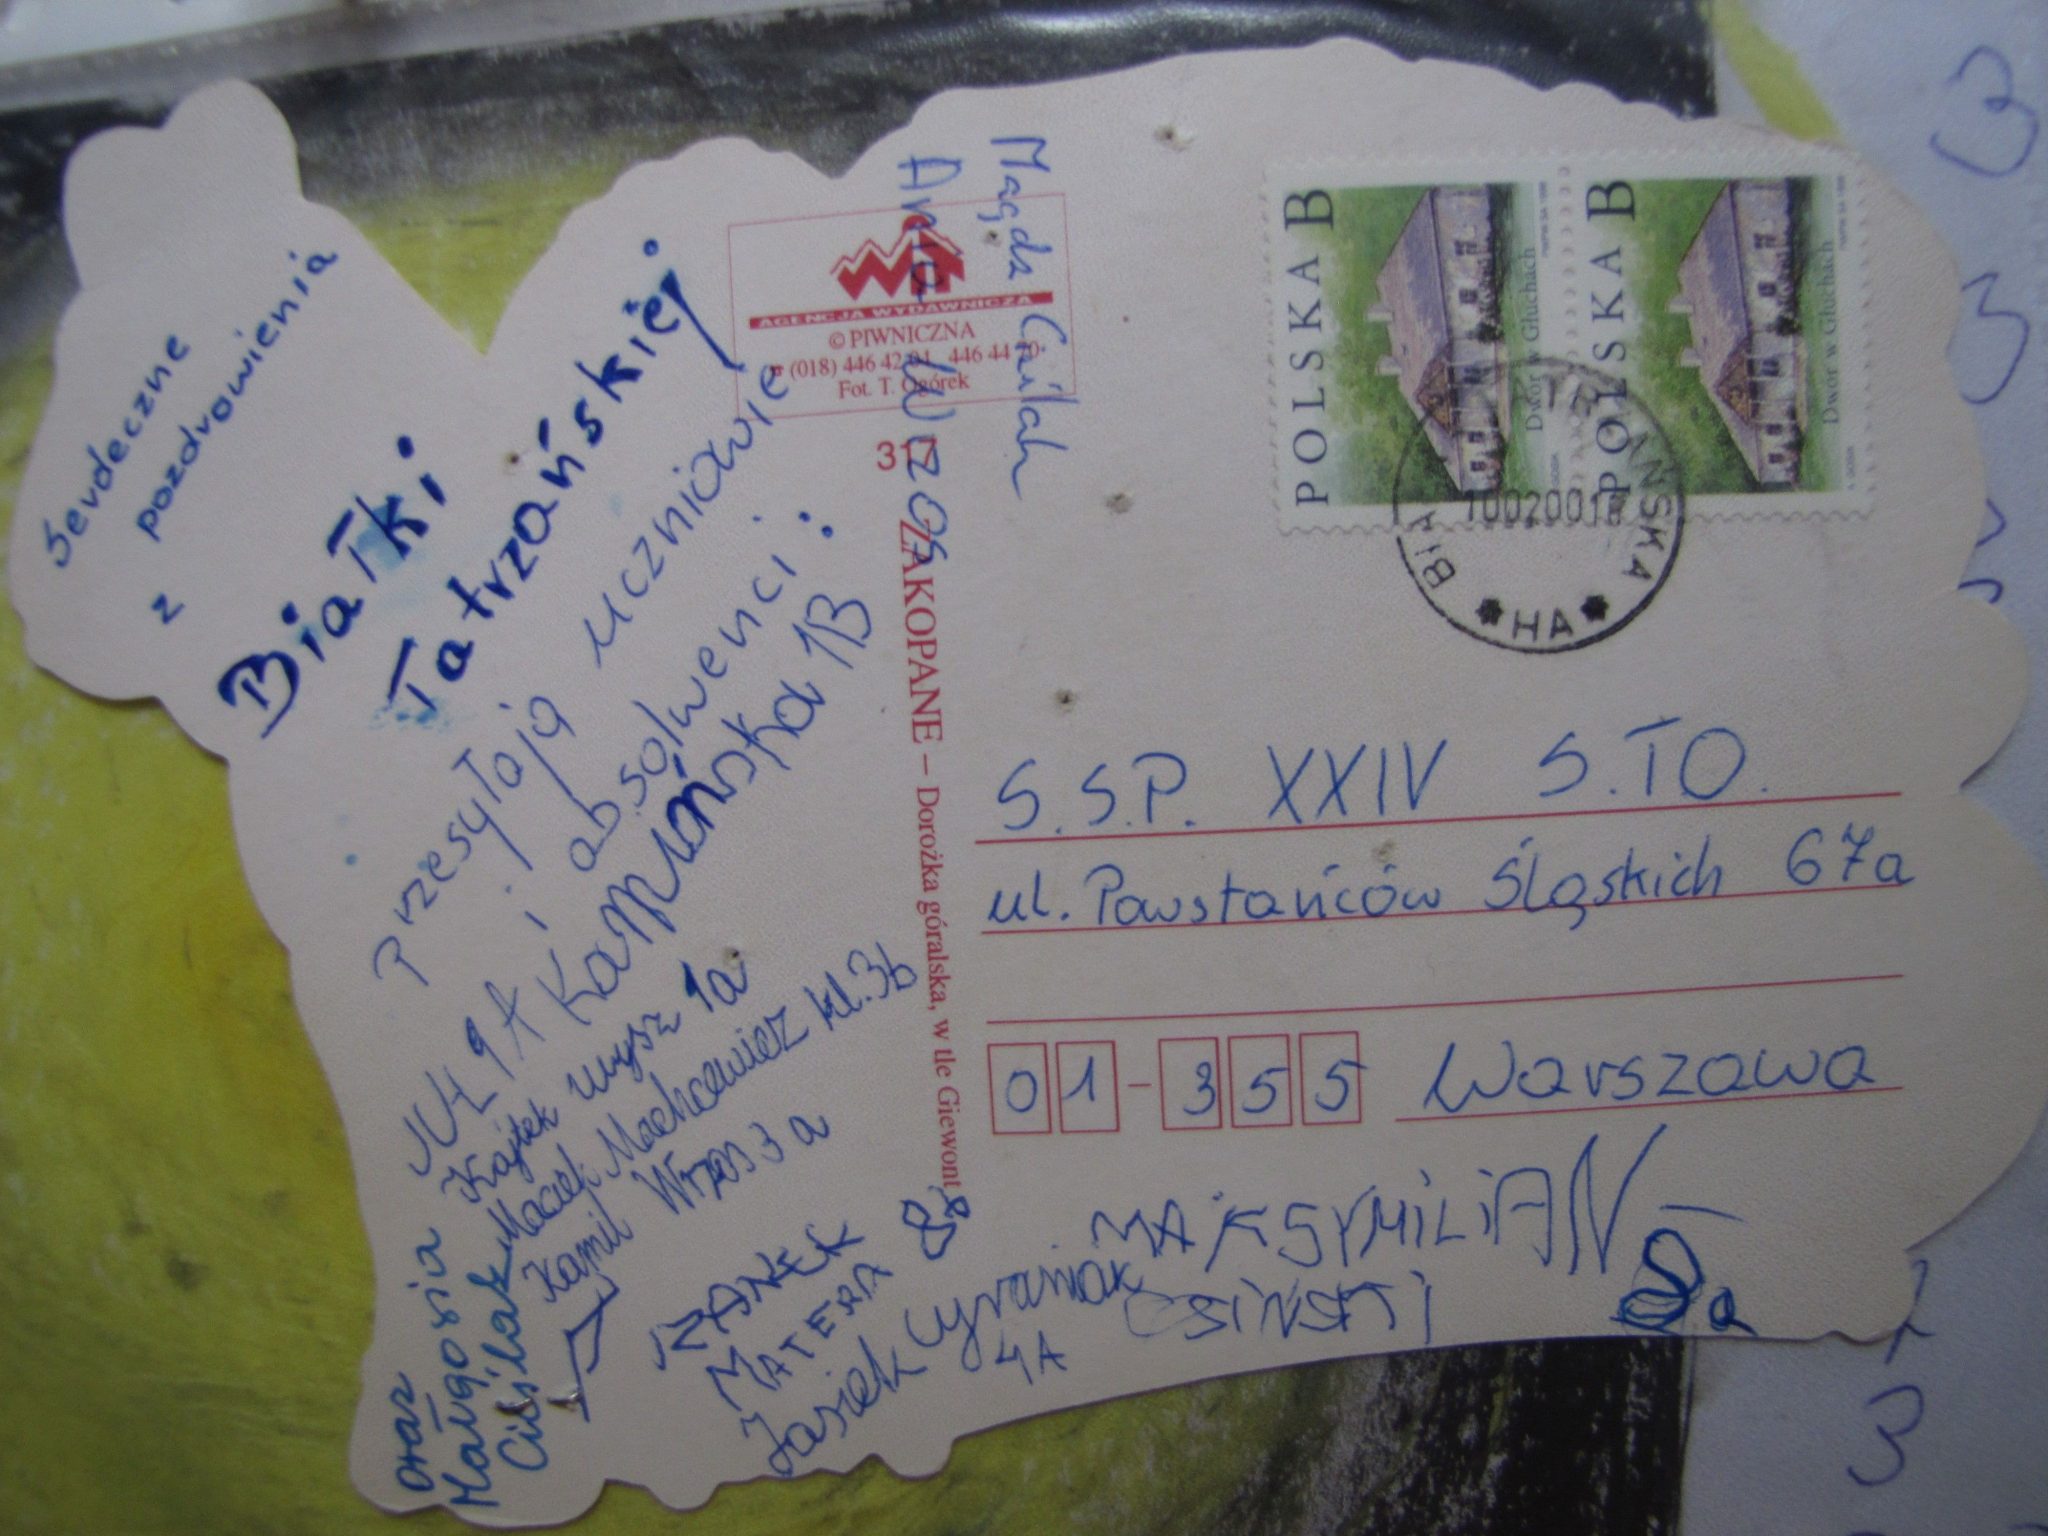 Serdeczne
pozdrowienia
z
Białki
Tatrzańskiej
przesyłają uczniowie
i absolwenci:
JULIA Kamieńska 1B
Kajtek 1a
Maciek Machcewicz kl. 3b
Kamil Wrzos 3a
oraz
Małgosia
Ciślak
JANEK
MATERA
Jasiek Cyraniak
4A
MAKSYMILIAN
OSIŃSKI
Magda Ciślak
Anna Wrzos
AGENCJA WYDAWNICZA
© PIWNICZNA
(018) 446 42 01, 446 44 70
Fot. T. Ogórek
317
ZAKOPANE – Dorożka góralska, w tle Giewont
POLSKA B
Dwór w Głuchach
POLSKA B
Dwór w Głuchach
HA
S.S.P. XXIV S.TO.
ul. Powstańców Śląskich 67a
01-355 Warszawa